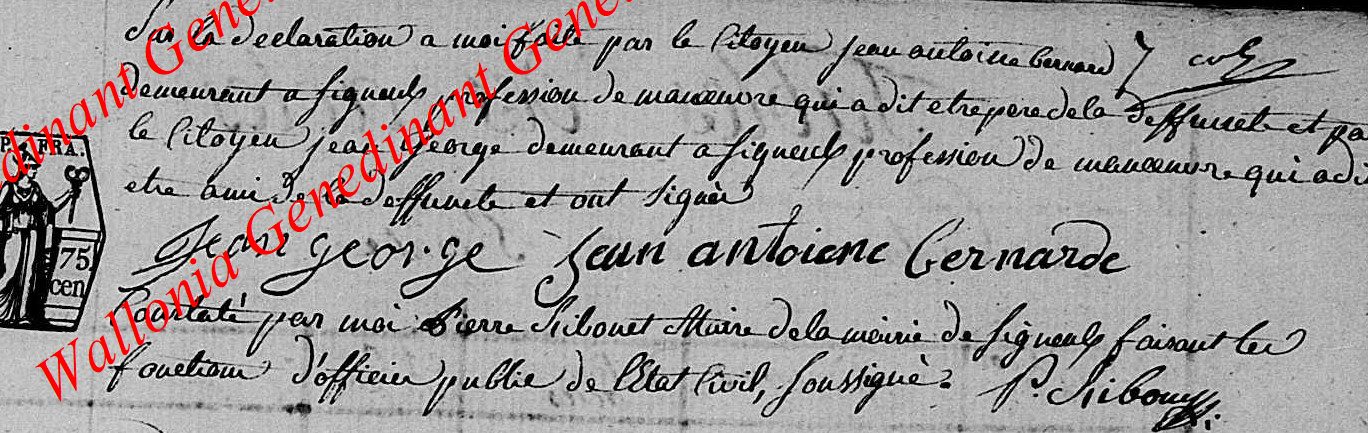 Sur la déclaration a moi faite par le Citoyen jean antoine bernard
demeurant a signeulx profession de manoeuvre qui a dit etre pere de la deffuncte et pa
le Citoyen jean George demeurant a signeulx profession de manoeuvre qui a di
etre ami de la deffuncte et ont signés
jean george jean antoiene bernarde
Constaté par moi Pierre Ribonet Maire de la mairie de signeulx faisant les
fonctions d'officier public de l'Etat Civil, soussigné
P. Ribon
P. FRA.
75
cen
edinant Genedinant Gene
Wallonia Genedinant Genedinant Gene